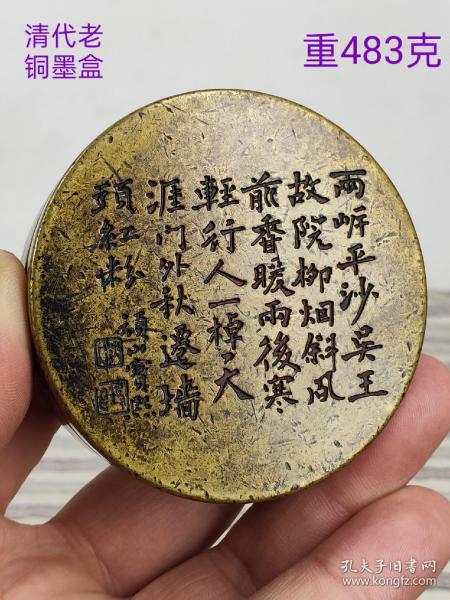 清代老
铜墨盒
重483克
兩岍平沙吳王
故院柳烟斜风
前香暖雨後寒
輕行人一棹天
涯门外秋遷墙
頭紅粉
孔夫子旧书网
www.kongfz.com